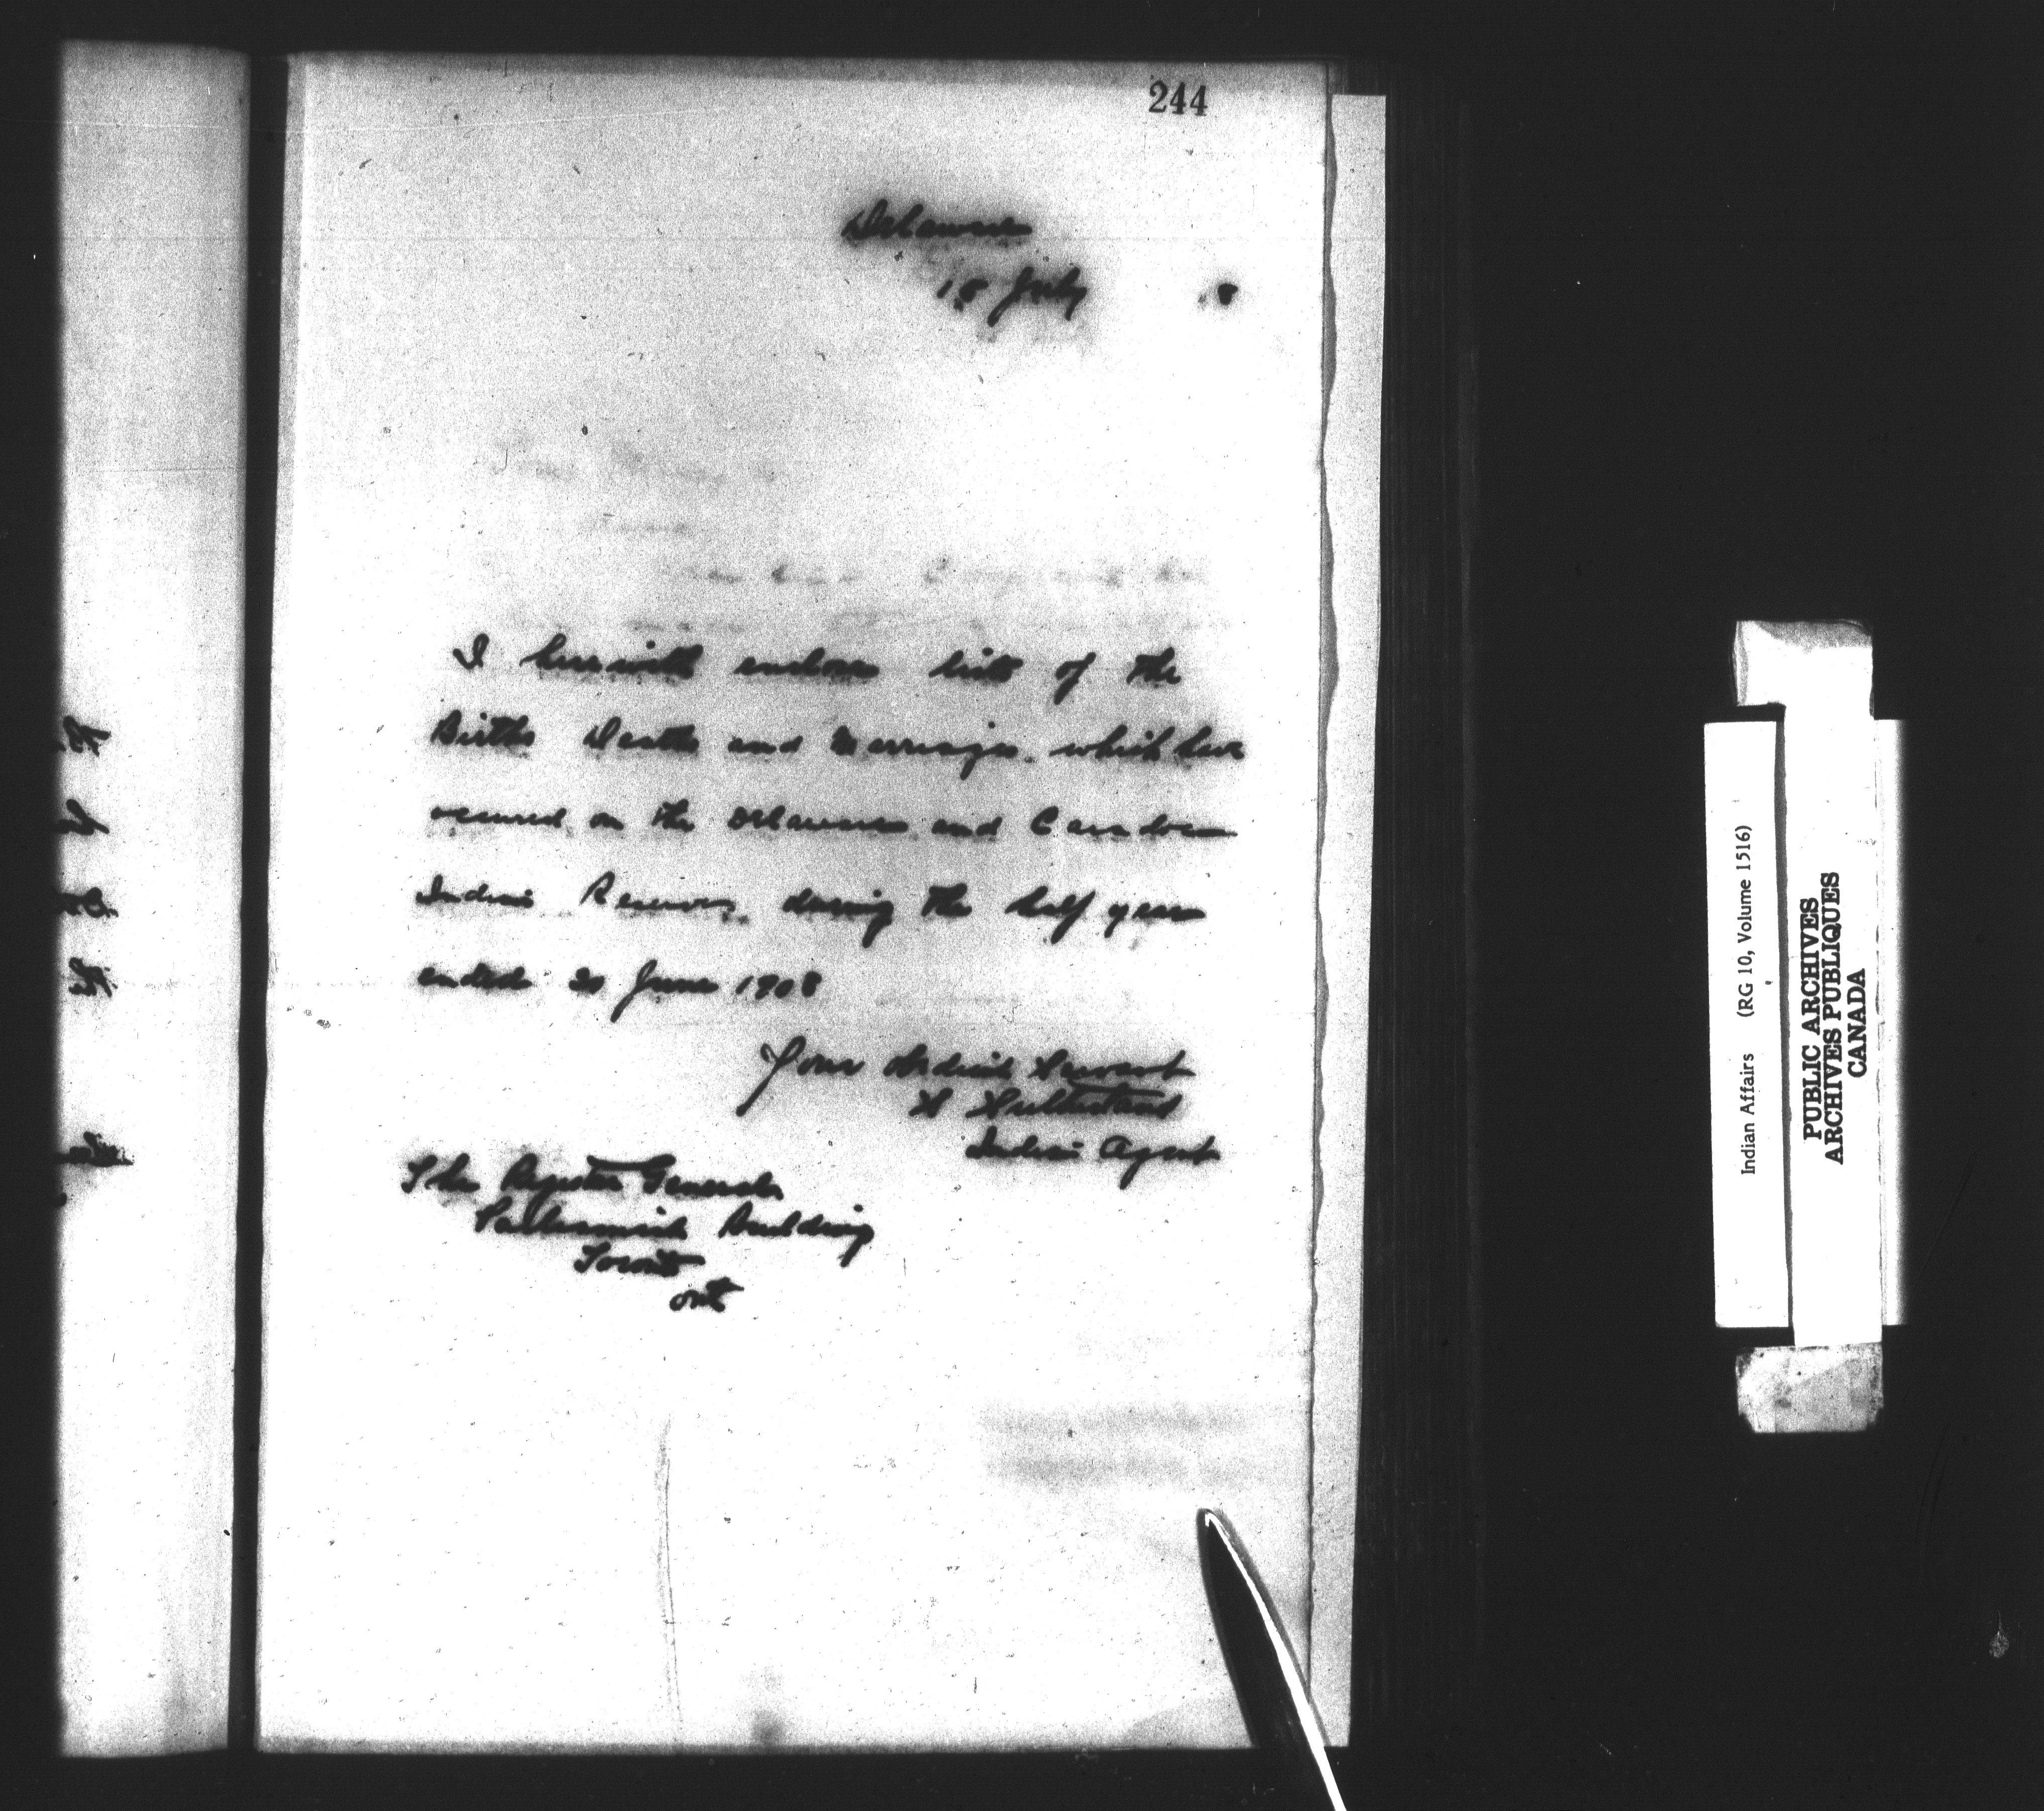 244
Delaware
18 July 8
I herewith enclose lists of the
Births Deaths and Marriages which have
occured on the Delaware and Caradoc
Indian Reserves during the half year
ended 30 June 1908
Your Obedient Servant
S Sutherland
Indian Agent
The Register General
Parliament Building
Toronto
Ont
Indian Affairs (RG 10, Volume 1516)
PUBLIC ARCHIVES
ARCHIVES PUBLIQUES
CANADA